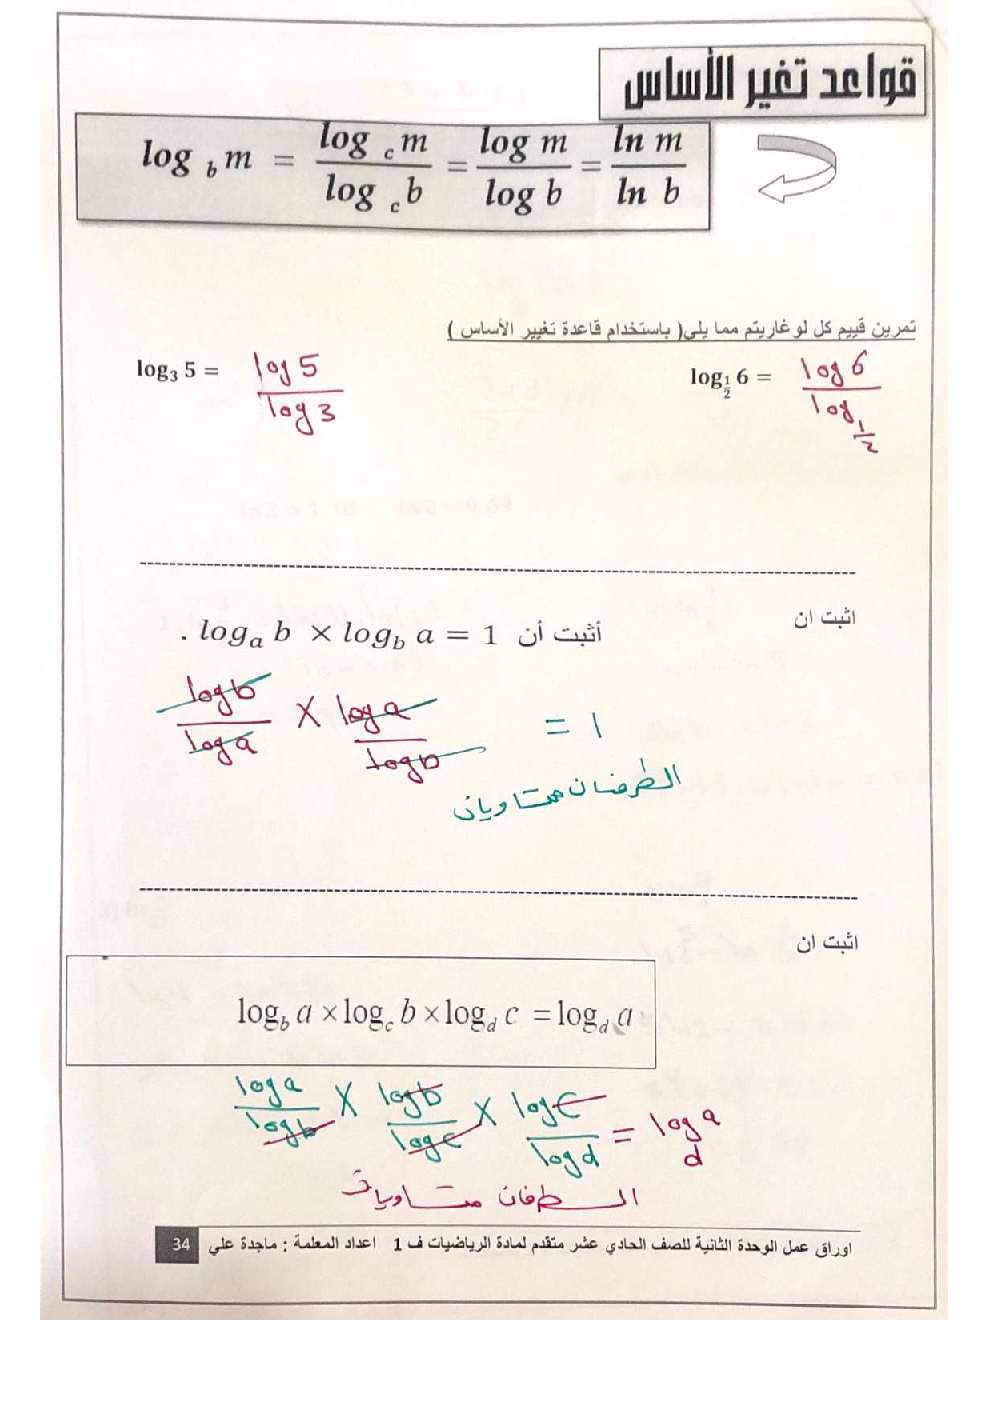 قواعد تغير الأساس
log _b m = log _c m / log _c b = log m / log b = ln m / ln b
تمرين قييم كل لوغاريتم مما يلي( باستخدام قاعدة تغيير الأساس )
log_{1/2} 6 = log 6 / log 1/2
log₃ 5 = log 5 / log 3
اثبت ان
أثبت أن log_a b × log_b a = 1 .
log b / log a × log a / log b = 1
الطرفان متساويان
اثبت ان
log_b a × log_c b × log_d c = log_d a
log a / log b × log b / log c × log c / log d = log_d a
الطرفان متساويان
اوراق عمل الوحدة الثانية للصف الحادي عشر متقدم لمادة الرياضيات ف 1 اعداد المعلمة : ماجدة علي 34